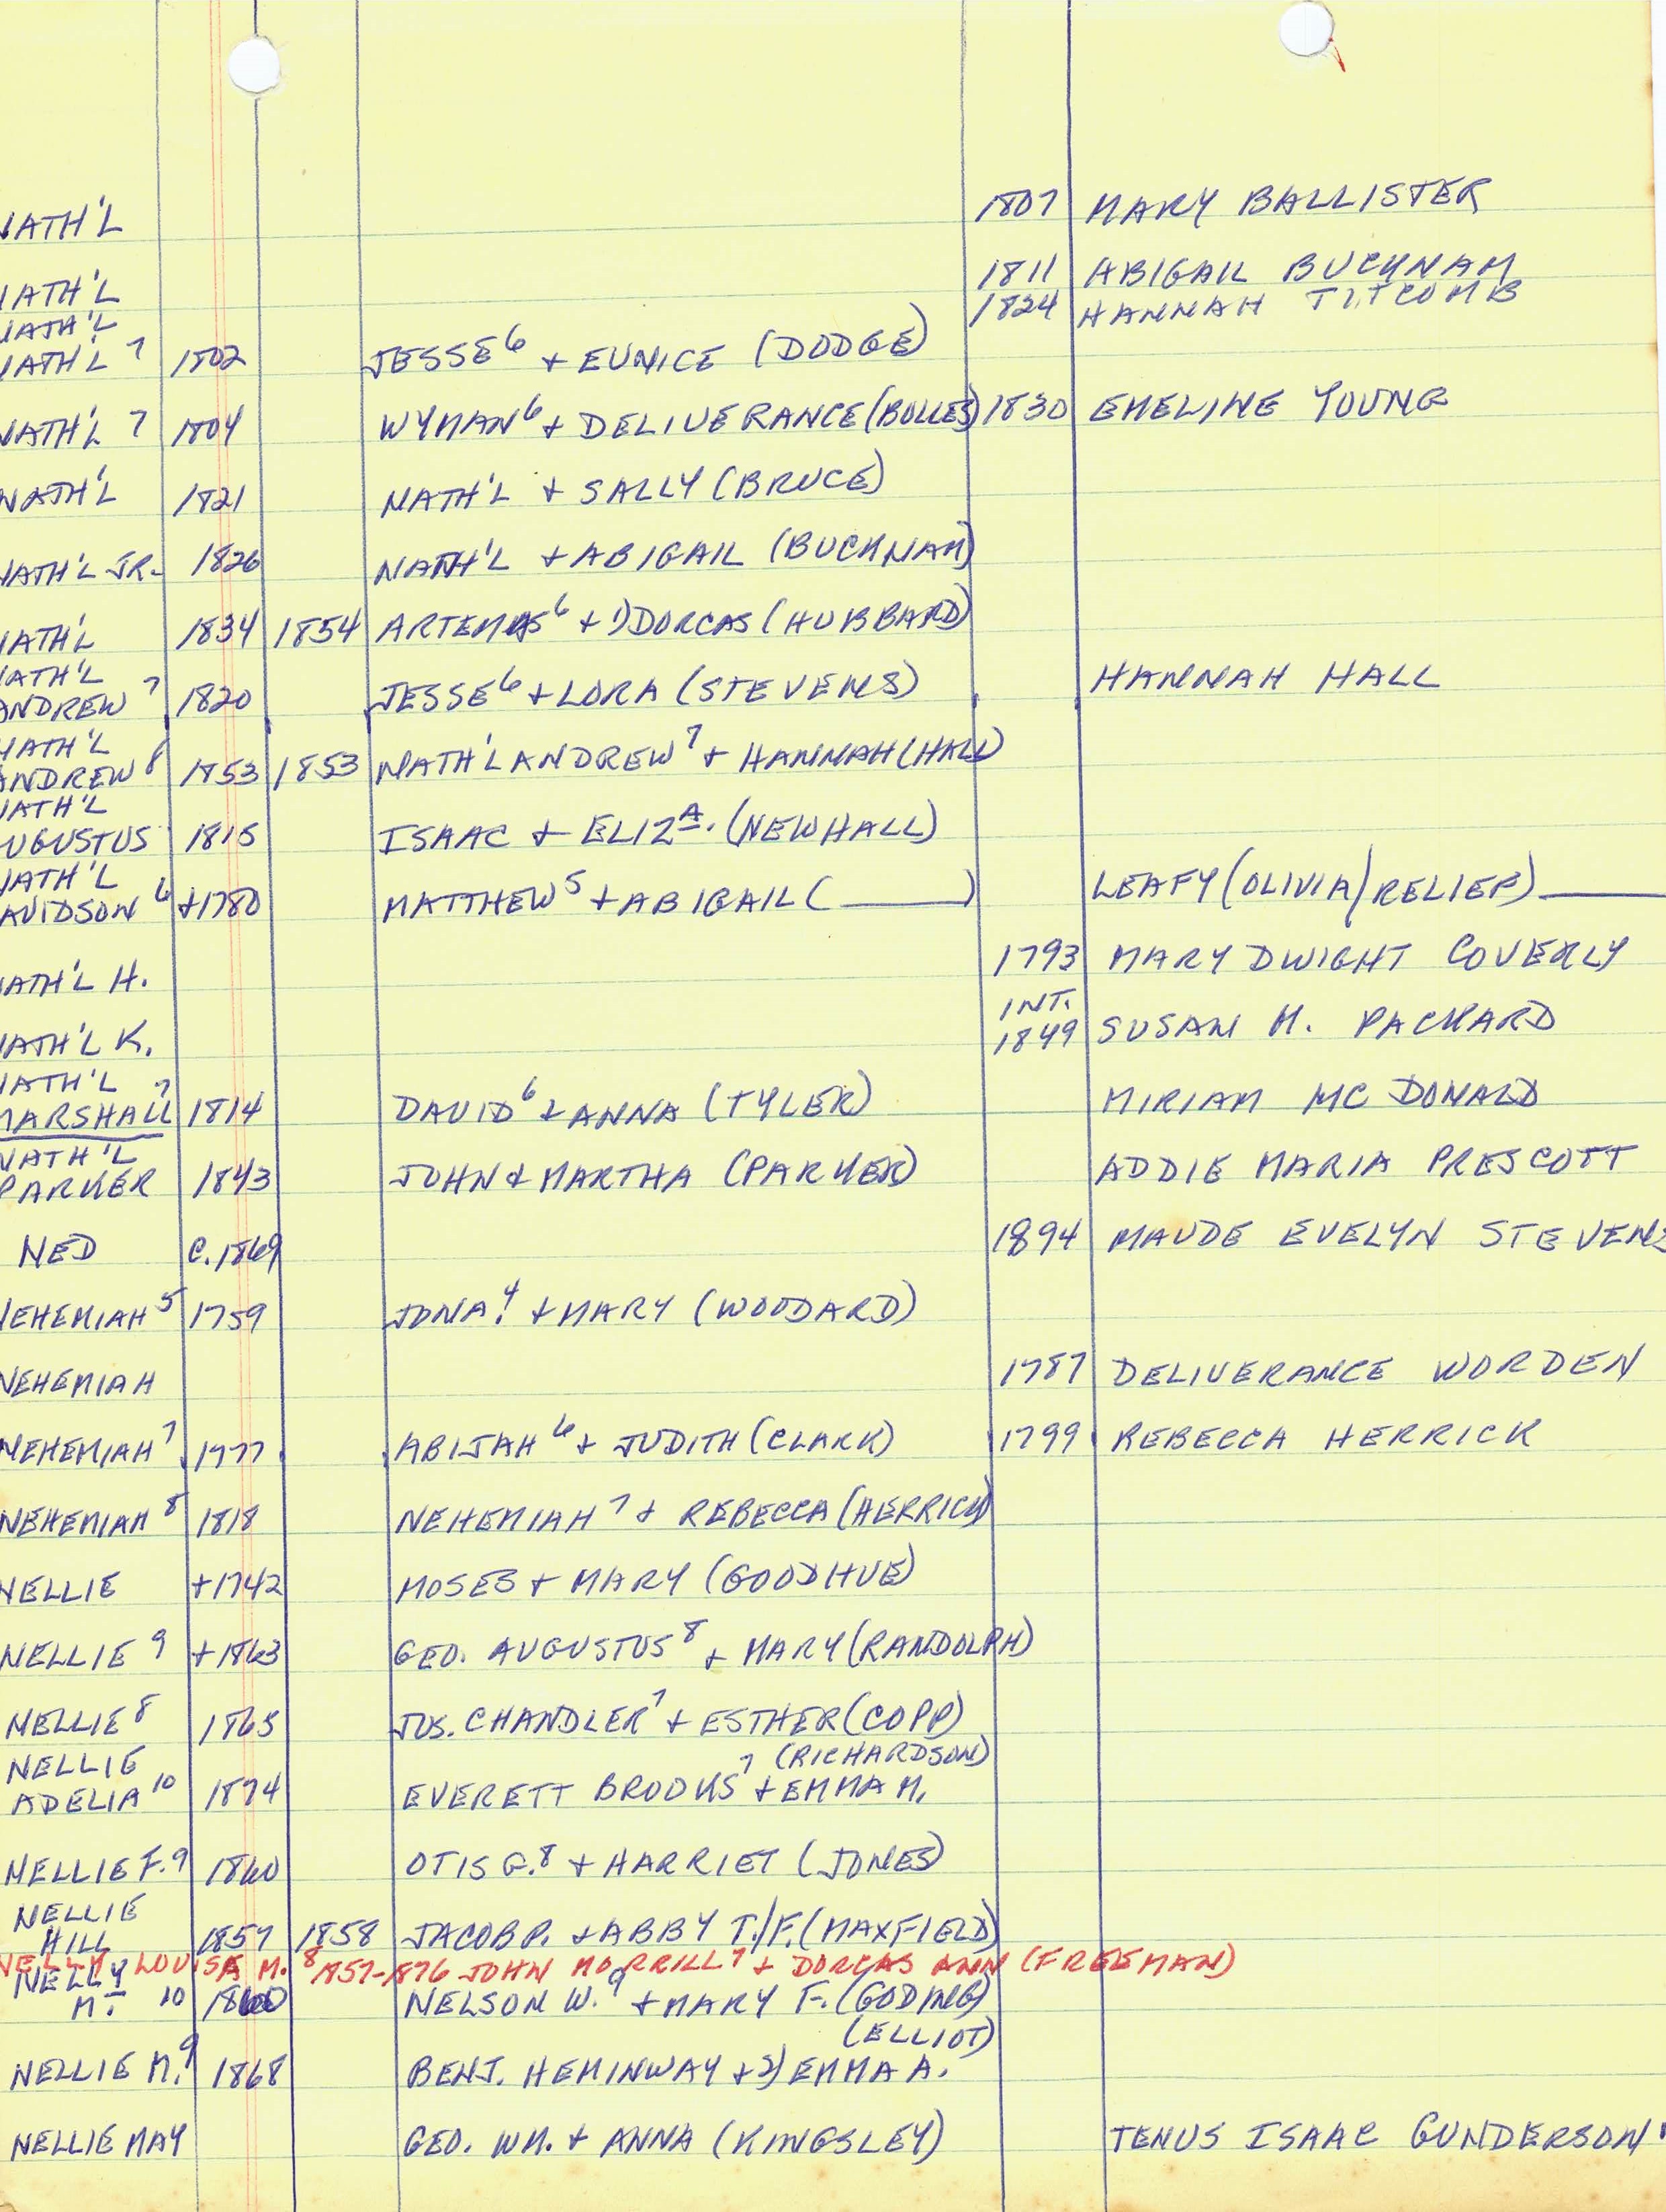 NATH'L 1807 MARY BALLISTER
NATH'L 1811 ABIGAIL BUCKNAM
NATH'L 1824 HANNAH TITCOMB
NATH'L 7 1802 JESSE 6 + EUNICE (DODGE)
NATH'L 7 1804 WYMAN 6 + DELIVERANCE (BOLLES) 1830 EMELINE YOUNG
NATH'L 1821 NATH'L + SALLY (BRUCE)
NATH'L JR. 1826 NATH'L + ABIGAIL (BUCKNAM)
NATH'L 1834 1854 ARTEMAS 6 + 1) DORCAS (HUBBARD)
NATH'L
ANDREW 7 1820 JESSE 6 + LORA (STEVENS) HANNAH HALL
NATH'L
ANDREW 8 1853 1853 NATH'L ANDREW 7 + HANNAH (HALL)
NATH'L
UGUSTUS 1815 ISAAC + ELIZA. (NEWHALL)
NATH'L
AVIDSON 6 +1780 MATTHEW 5 + ABIGAIL (____) LEAFY (OLIVIA/RELIEF) ____
NATH'L H. 1793 MARY DWIGHT COVERLY
INT.
NATH'L K. 1849 SUSAN M. PACKARD
NATH'L
MARSHALL 7 1814 DAVID 6 + ANNA (TYLER) MIRIAM MC DONALD
NATH'L
PARKER 1843 JOHN & MARTHA (PARKER) ADDIE MARIA PRESCOTT
NED C. 1869 1894 MAUDE EVELYN STEVENS
NEHEMIAH 5 1759 JONA. 4 + MARY (WOODARD)
NEHEMIAH 1787 DELIVERANCE WORDEN
NEHEMIAH 7 1777 ABIJAH 6 + JUDITH (CLARK) 1799 REBECCA HERRICK
NEHEMIAH 8 1818 NEHEMIAH 7 + REBECCA (HERRICK)
NELLIE +1742 MOSES + MARY (GOODHUE)
NELLIE 9 +1863 GEO. AUGUSTUS 8 + MARY (RANDOLPH)
NELLIE 8 1865 JOS. CHANDLER 7 + ESTHER (COPP)
NELLIE (RICHARDSON)
ADELIA 10 1874 EVERETT BROOKS 7 + EMMA M.
NELLIE F. 9 1860 OTIS G. 8 + HARRIET (JONES)
NELLIE
HILL 1857 1858 JACOB P. + ABBY T./F. (MAXFIELD)
NELLY LOUISA M. 8 1857-1876 JOHN MORRILL 7 + DORCAS ANN (FREEMAN)
NELLY
M. 10 1860 NELSON W. 9 + MARY F. (GODING)
(ELLIOT)
NELLIE M. 9 1868 BENJ. HEMINWAY + 2) EMMA A.
NELLIE MAY GEO. WM. + ANNA (KINGSLEY) TENUS ISAAC GUNDERSON